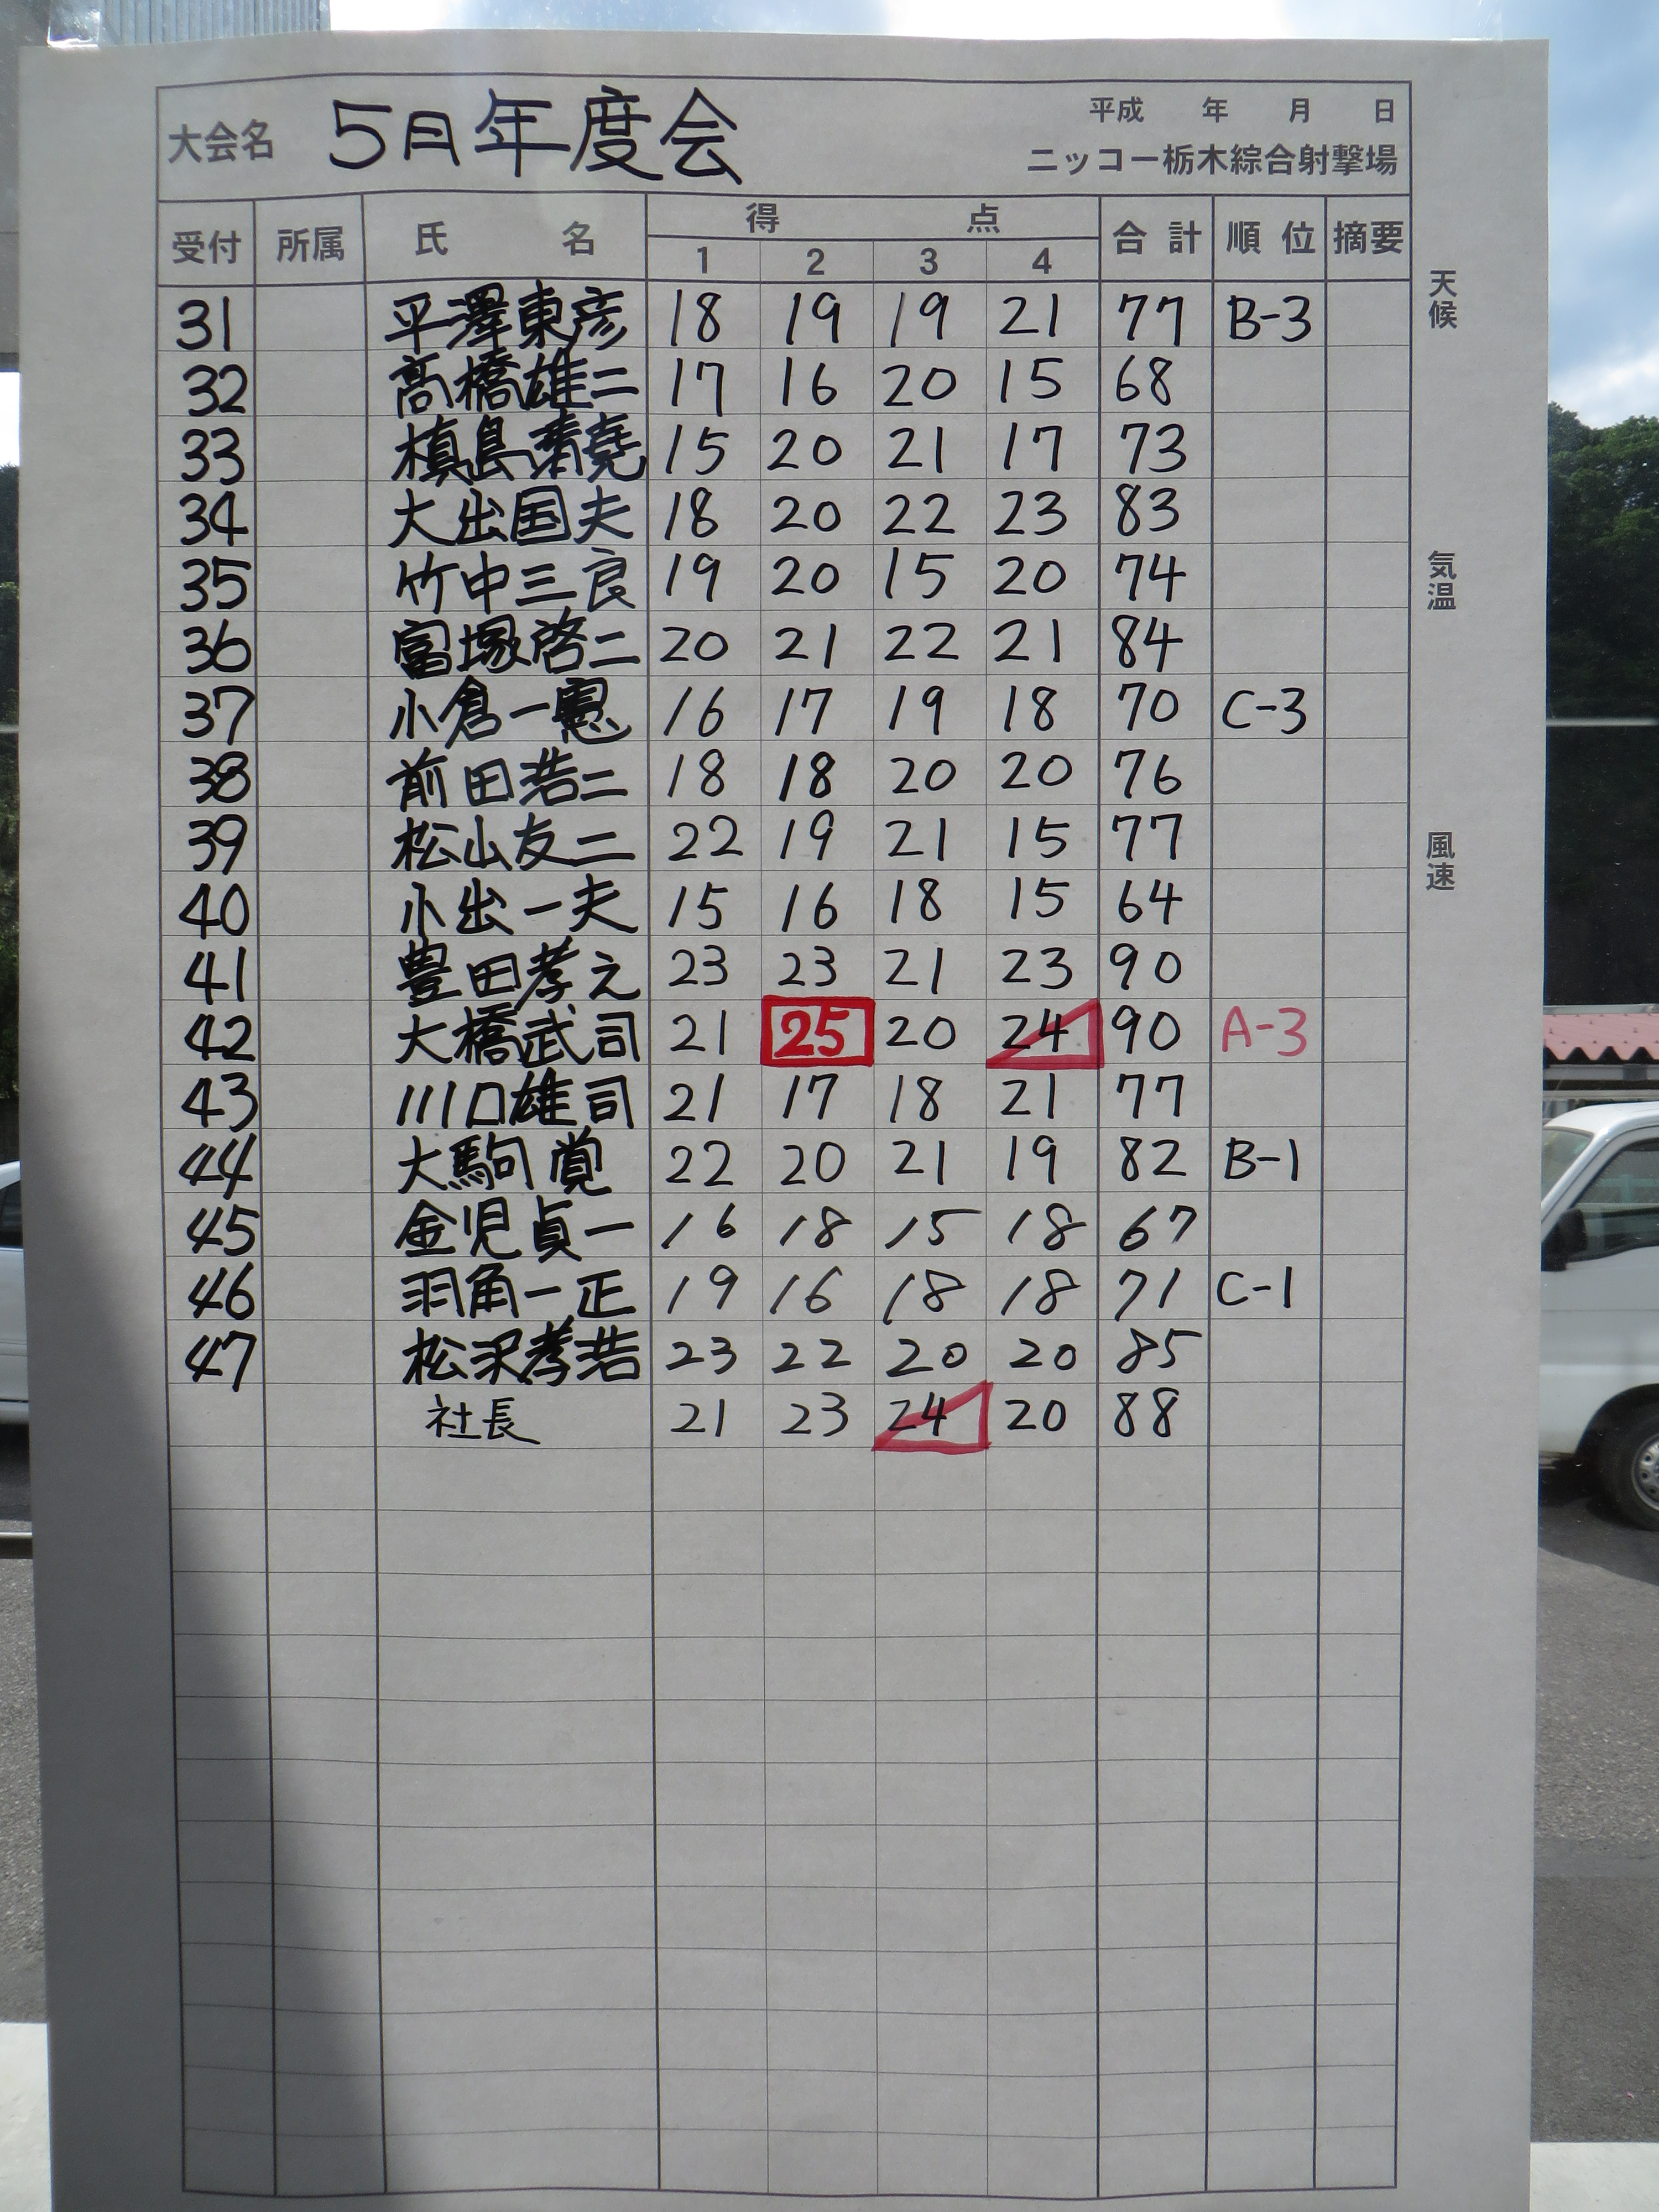 大会名 5月年度会 平成 年 月 日
ニッコー栃木綜合射撃場
受付 所属 氏名 得点 合計 順位 摘要
1 2 3 4
31 平澤東彦 18 19 19 21 77 B-3
32 髙橋雄二 17 16 20 15 68
33 槙島 15 20 21 17 73
34 大出国夫 18 20 22 23 83
35 竹中三良 19 20 15 20 74
36 富塚啓二 20 21 22 21 84
37 小倉一憲 16 17 19 18 70 C-3
38 前田浩二 18 18 20 20 76
39 松山友二 22 19 21 15 77
40 小出一夫 15 16 18 15 64
41 豊田孝之 23 23 21 23 90
42 大橋武司 21 25 20 24 90 A-3
43 川口雄司 21 17 18 21 77
44 大駒覚 22 20 21 19 82 B-1
45 金児貞一 16 18 15 18 67
46 羽角一正 19 16 18 18 71 C-1
47 松沢孝浩 23 22 20 20 85
社長 21 23 24 20 88
天候
気温
風速